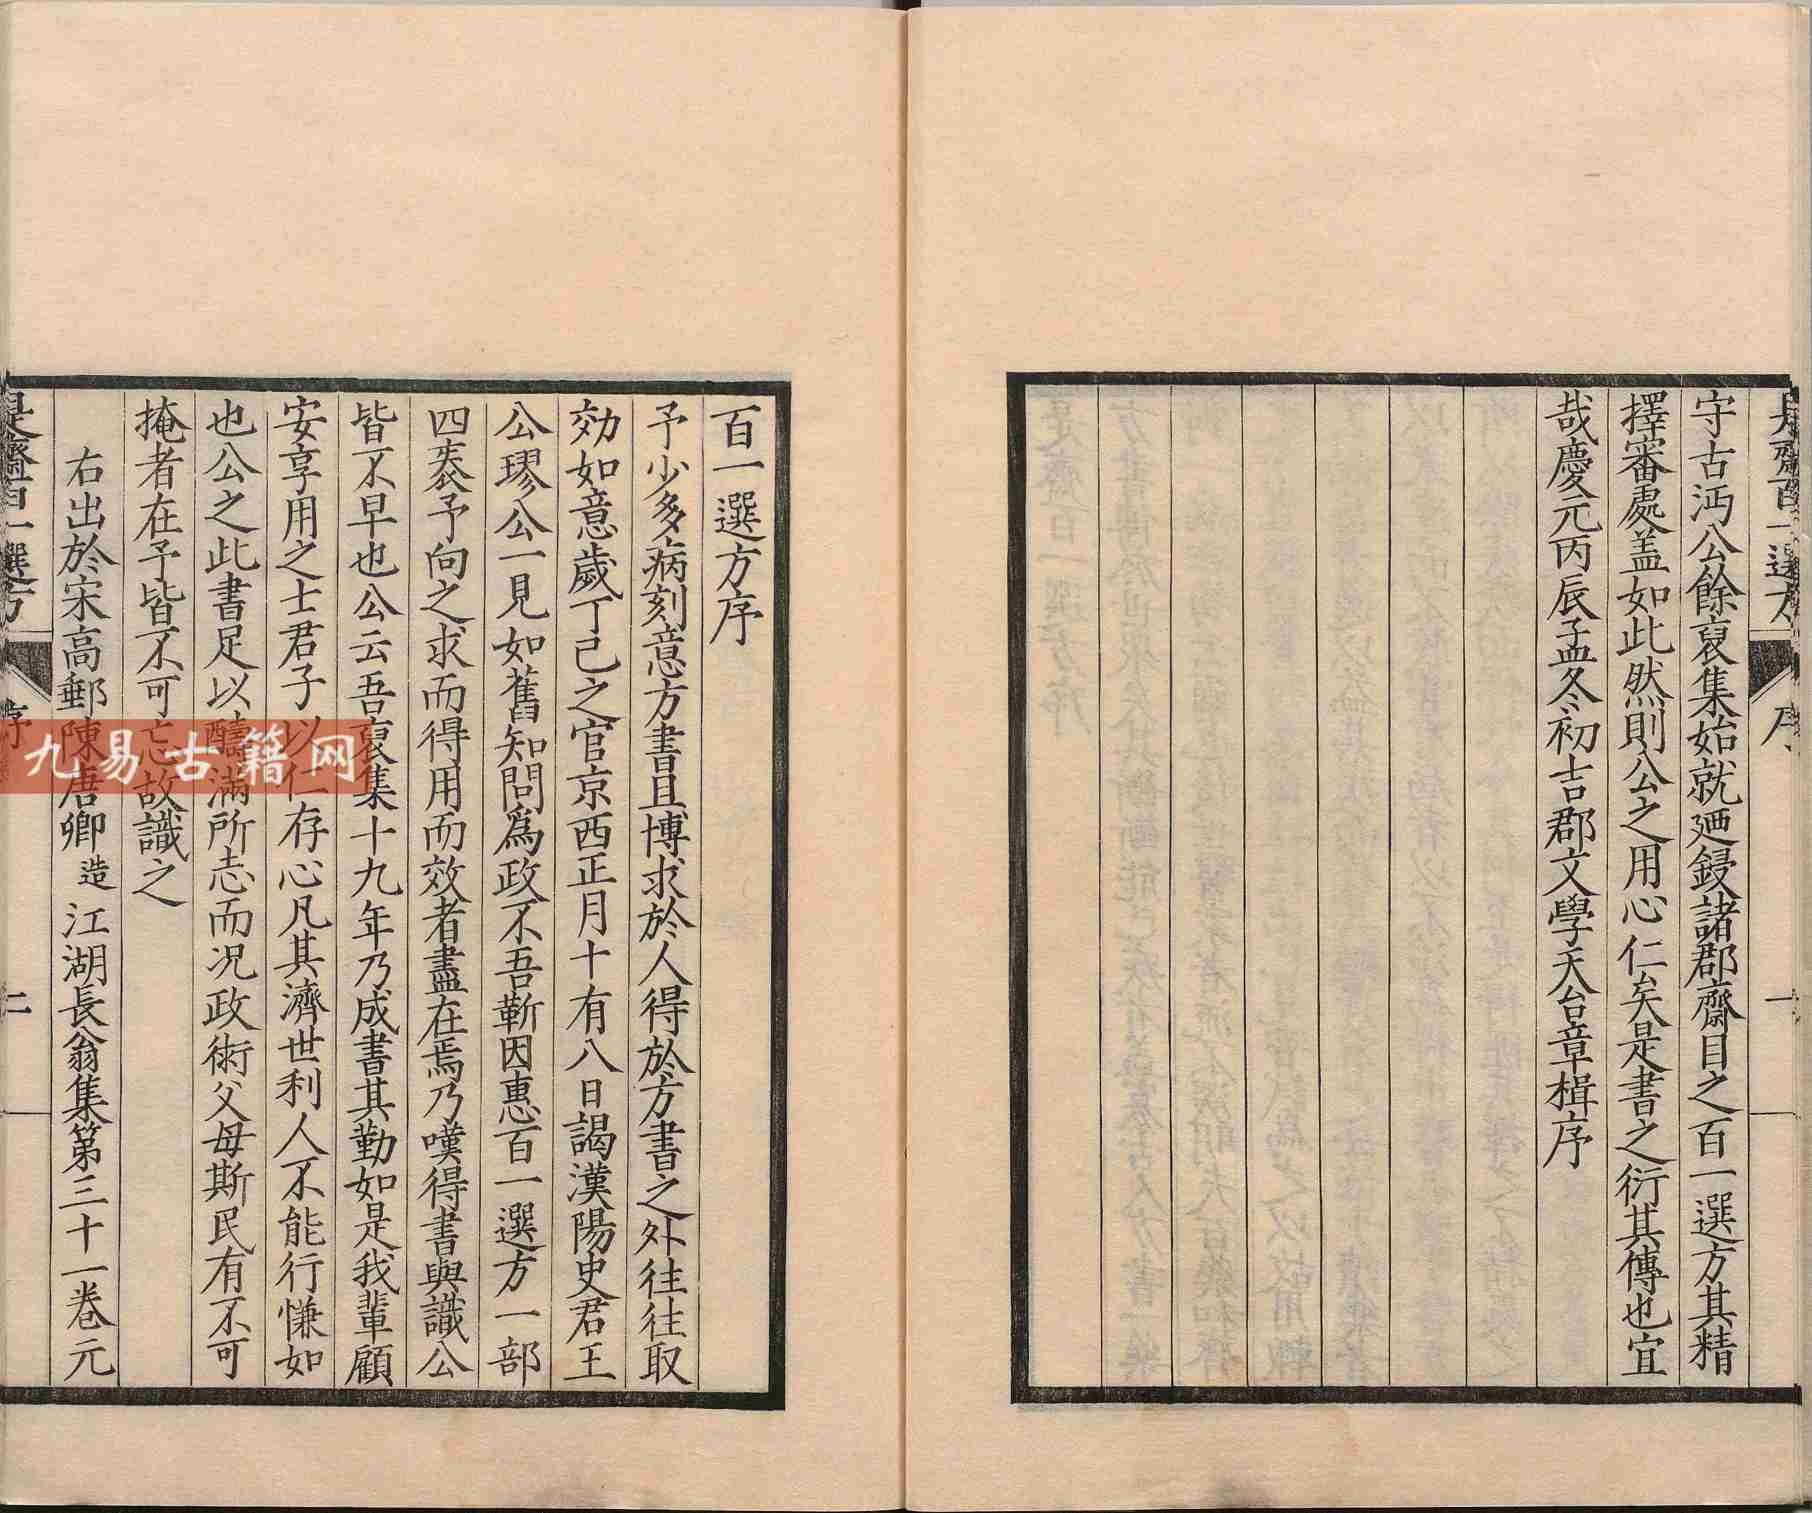 是齋百一選方
序
一
守古沔公餘裒集始就廼鋟諸郡齋目之百一選方其精
擇審處盖如此然則公之用心仁矣是書之衍其傳也宜
哉慶元丙辰孟冬初吉郡文學天台章楫序
百一選方序
予少多病刻意方書且博求於人得於方書之外往往取
効如意歲丁己之官京西正月十有八日謁漢陽史君王
公璆公一見如舊知問爲政不吾靳因惠百一選方一部
四袠予向之求而得用而效者盡在焉乃嘆得書與識公
皆不早也公云吾裒集十九年乃成書其勤如是我輩顧
安享用之士君子以仁存心凡其濟世利人不能行慊如
也公之此書足以醻滿所志而况政術父母斯民有不可
掩者在予皆不可忘故識之
右出於宋高郵陳唐卿造江湖長翁集第三十一卷元
是齋百一選方
序
二
九易古籍网